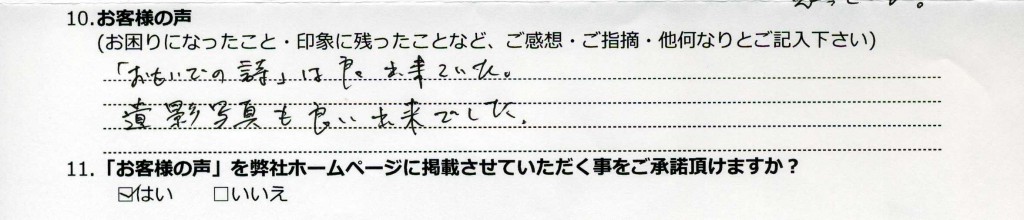 10.お客様の声
(お困りになったこと・印象に残ったことなど、ご感想・ご指摘・他何なりとご記入下さい)
「おもいでの詩」は良く出来ていた。
遺影写真も良い出来でした。
11.「お客様の声」を弊社ホームページに掲載させていただく事をご承諾頂けますか？
☑はい　□いいえ